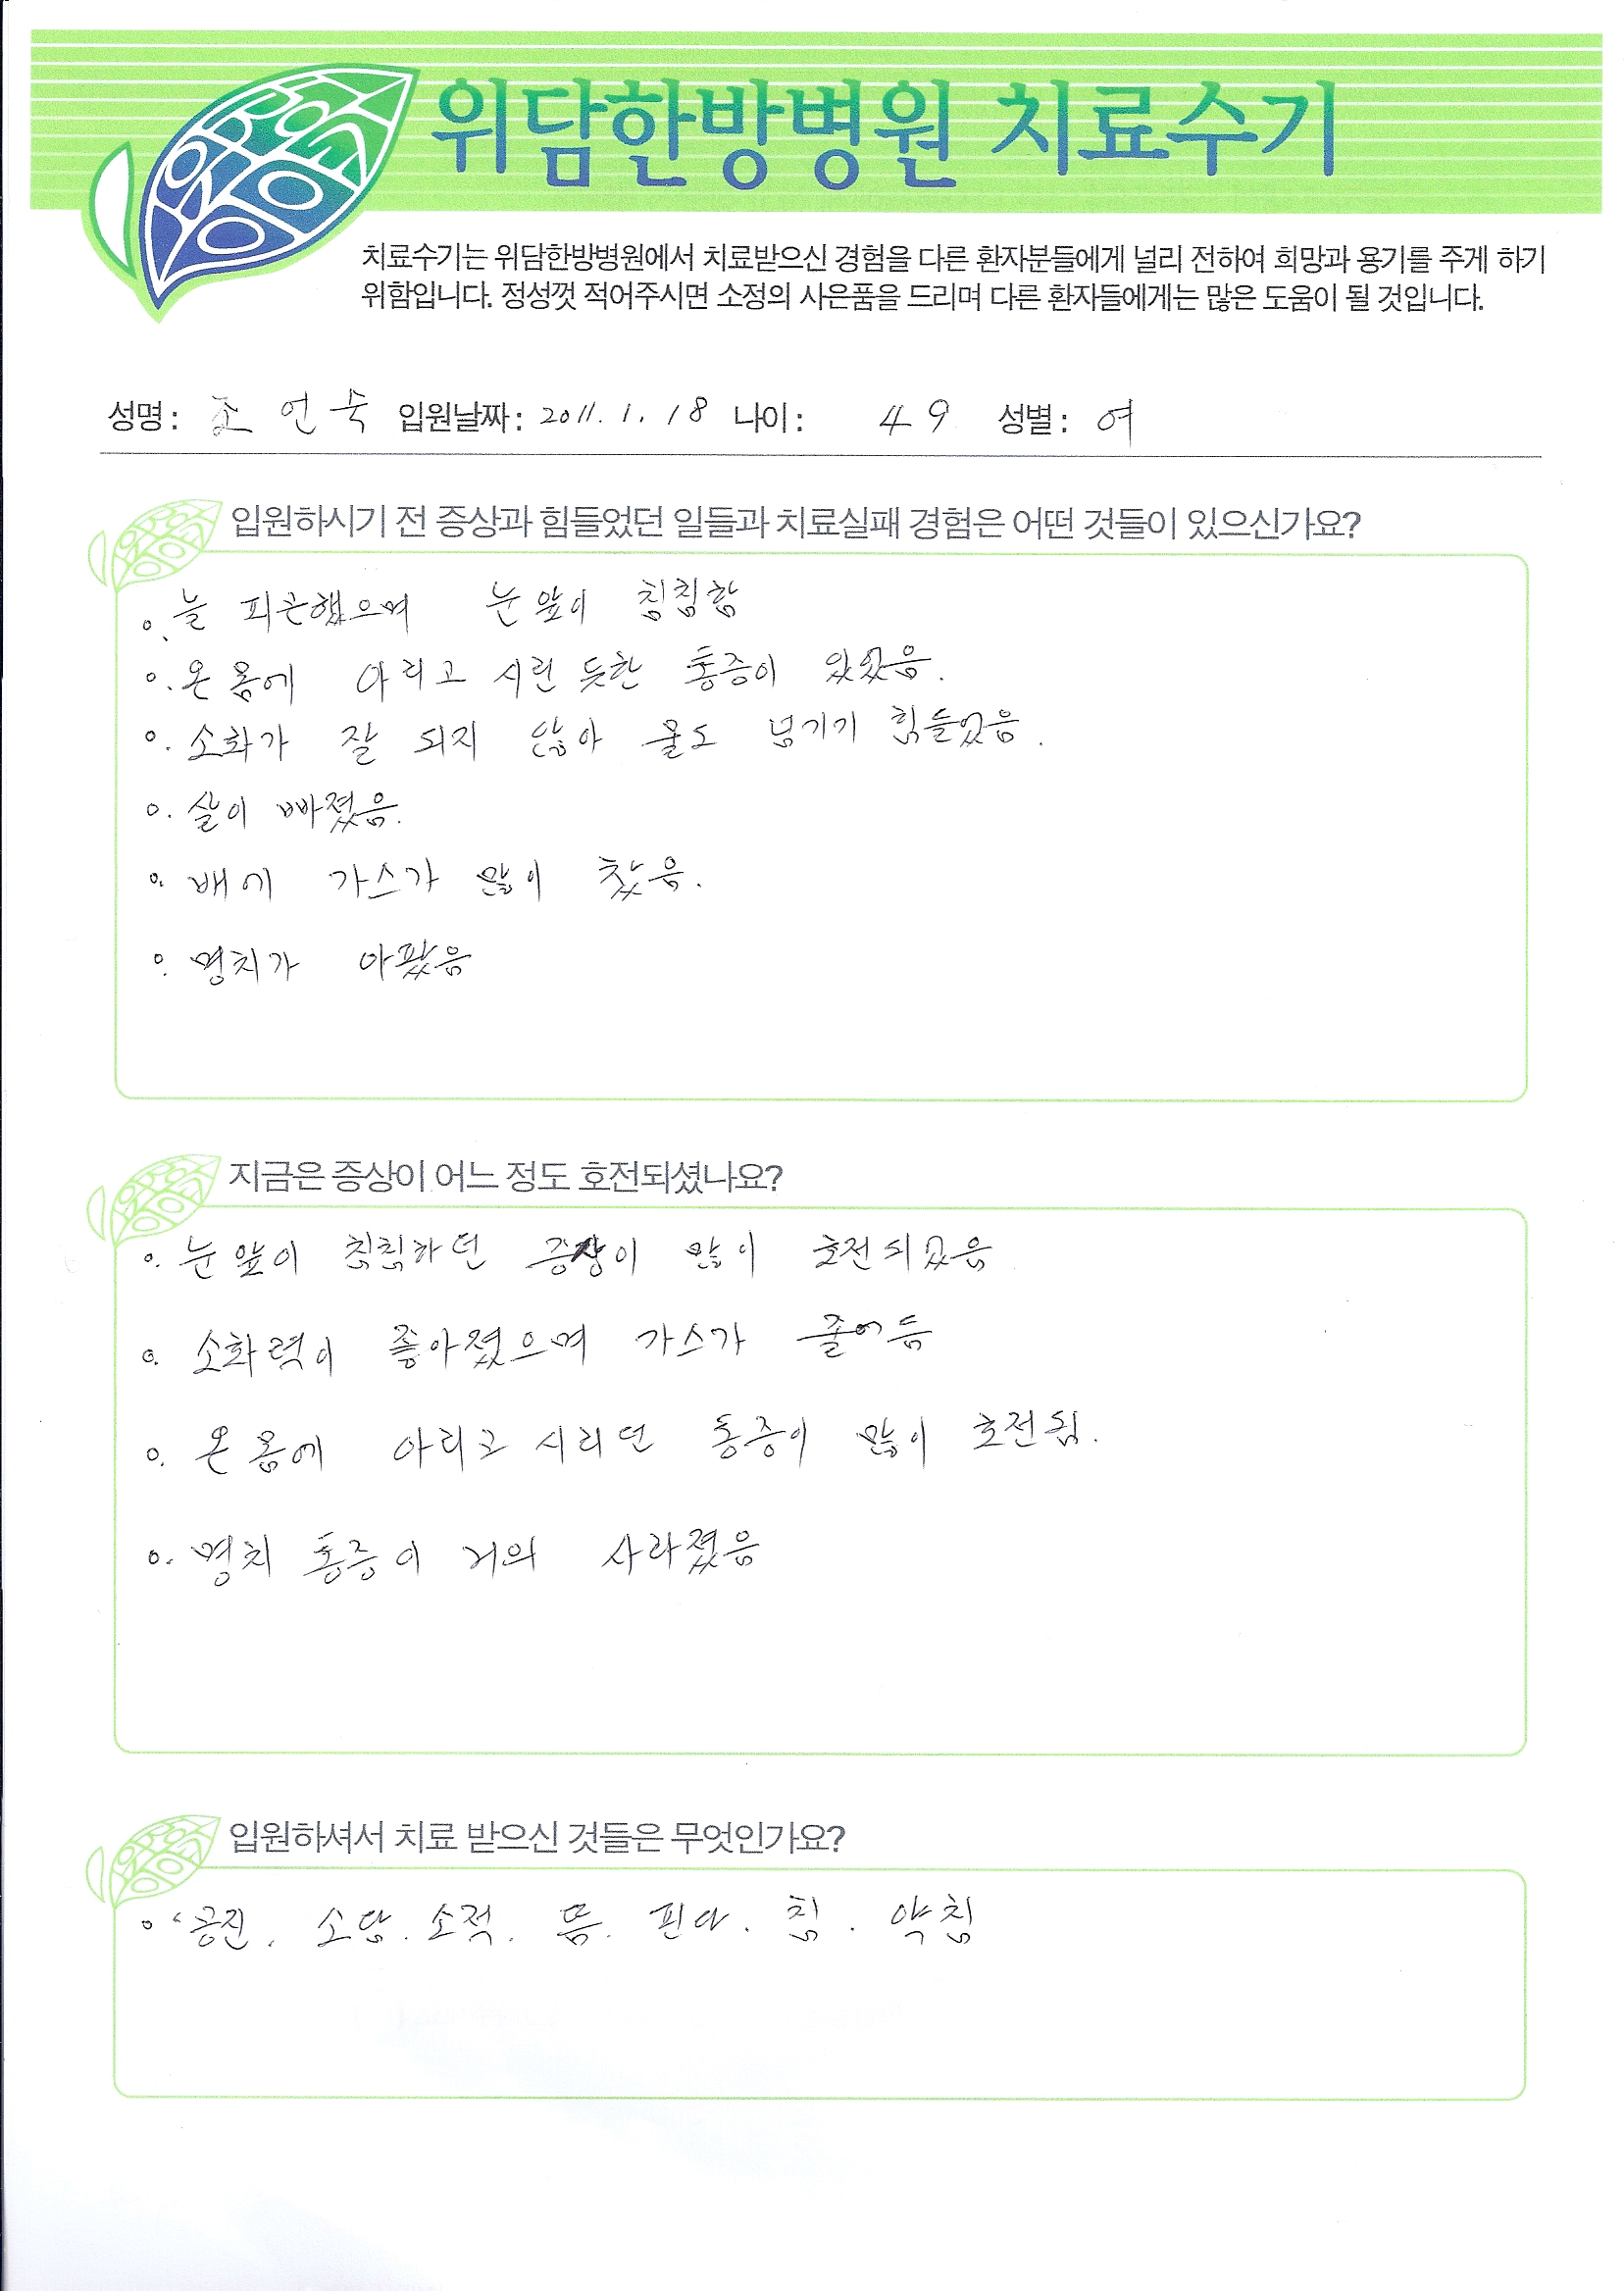 위담한방병원 치료수기
치료수기는 위담한방병원에서 치료받으신 경험을 다른 환자분들에게 널리 전하여 희망과 용기를 주게 하기
위함입니다. 정성껏 적어주시면 소정의 사은품을 드리며 다른 환자들에게는 많은 도움이 될 것입니다.
성명 : 조연숙 입원날짜 : 2011. 1. 18 나이 : 49 성별 : 여
입원하시기 전 증상과 힘들었던 일들과 치료실패 경험은 어떤 것들이 있으신가요?
늘 피곤했으며 눈앞이 침침함
온 몸에 아리고 시린 듯한 통증이 있었음.
소화가 잘 되지 않아 물도 넘기기 힘들었음.
살이 빠졌음.
배에 가스가 많이 찼음.
명치가 아팠음
지금은 증상이 어느 정도 호전되셨나요?
눈앞이 침침하던 증상이 많이 호전되었음
소화력이 좋아졌으며 가스가 줄어듬
온 몸에 아리고 시리던 통증이 많이 호전됨.
명치 통증이 거의 사라졌음
입원하셔서 치료 받으신 것들은 무엇인가요?
공진. 소담. 소적. 뜸. 핀다. 침. 약침